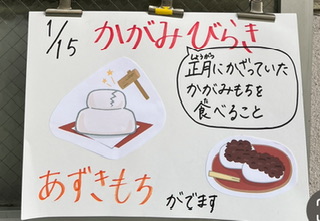 1/15
かがみびらき
しょうがつ
正月にかざっていた
かがみもちを
食べること
あずきもち がでます